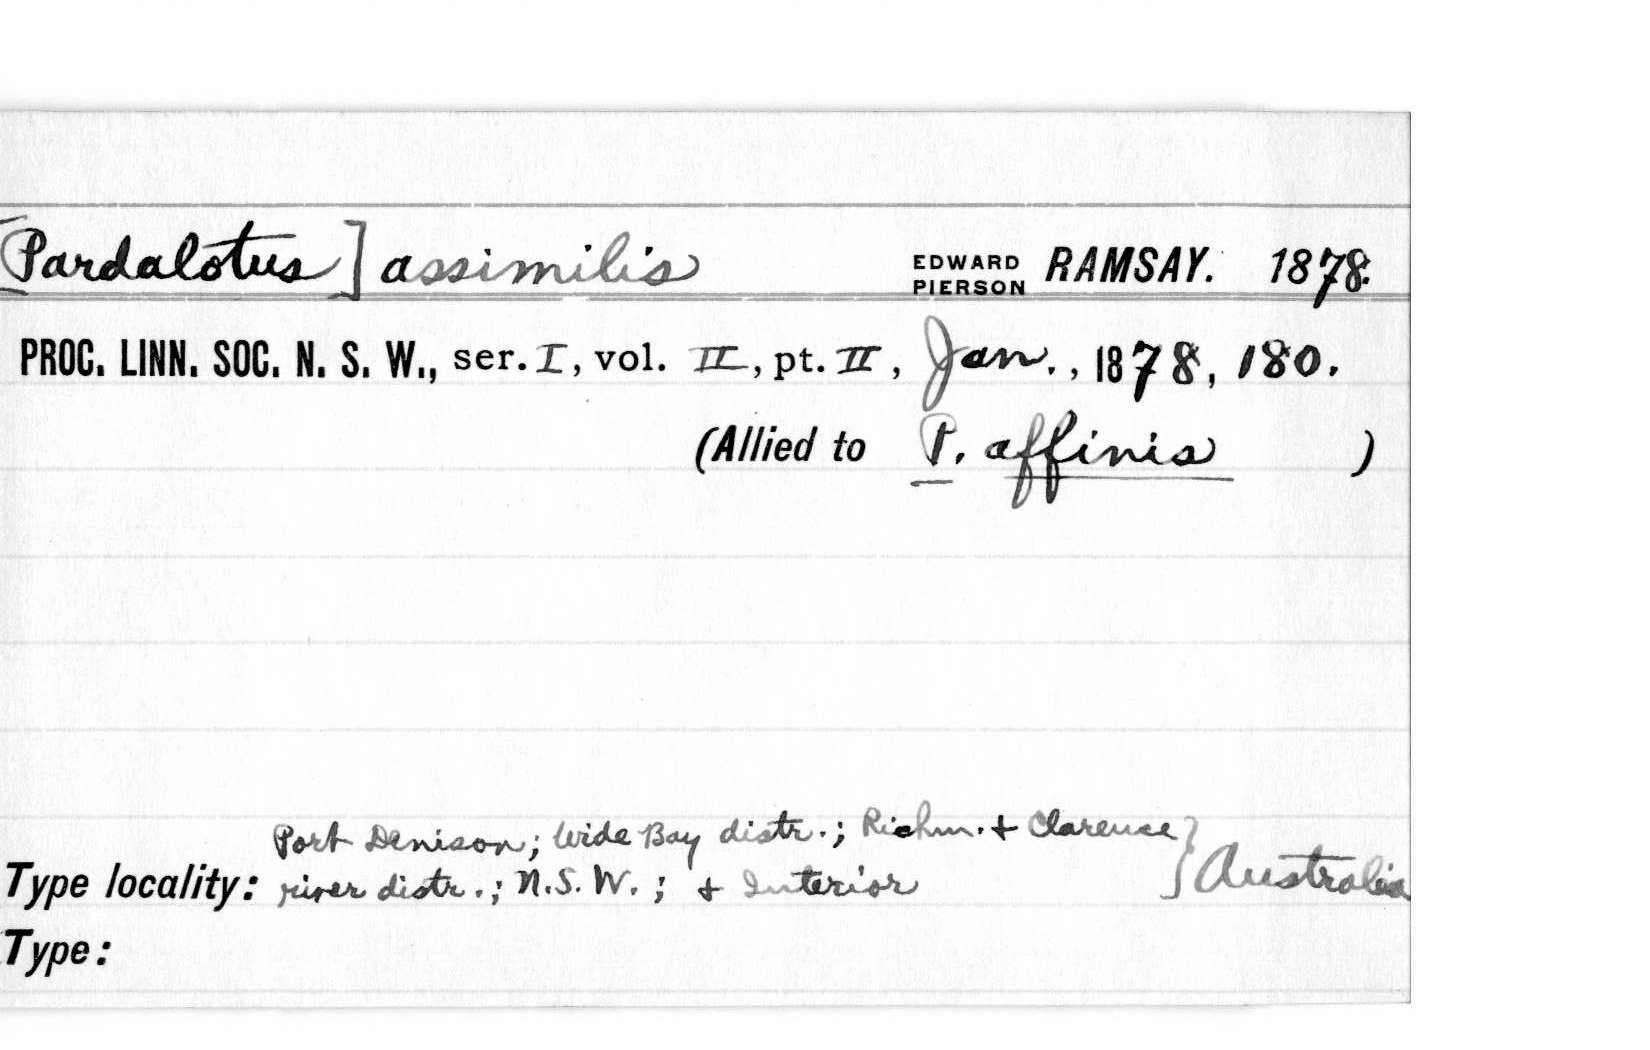 [Pardalotus] assimilis EDWARD PIERSON RAMSAY. 1878.
PROC. LINN. SOC. N. S. W., ser. I, vol. II, pt. II, Jan., 1878, 180.
(Allied to P. affinis )
Port Denison; Wide Bay distr.; Richm. & Clarence }
Type locality: river distr.; N.S.W.; & Interior } Australia
Type: